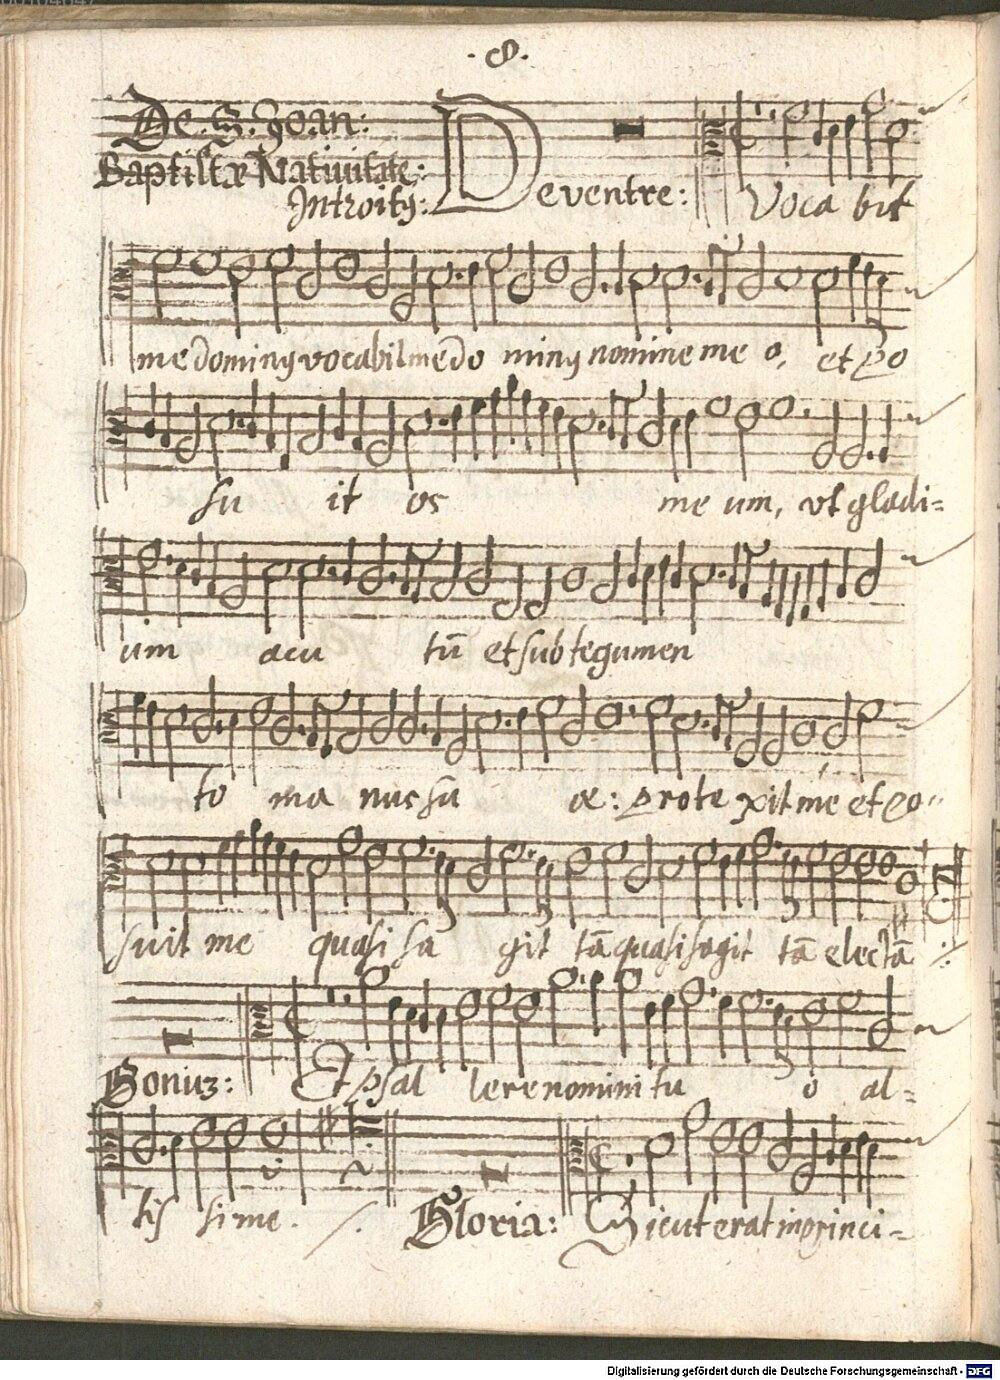 ·8·
De. S. Joan:
Baptistæ Nativitate:
Introitꝰ: De ventre: Voca bit
me dominꝰ vocabit me do minꝰ nomine me o, et po
su it os me um, vt gladi=
um acu tū et sub tegumen
to ma nus su æ: prote xit me et po=
suit me quasi sa git tā quasi sagit tā electā
Bonū: Et psal lere nomini tu o al=
tis sime. /. Gloria: Sicut erat in princi=
Digitalisierung gefördert durch die Deutsche Forschungsgemeinschaft - DFG